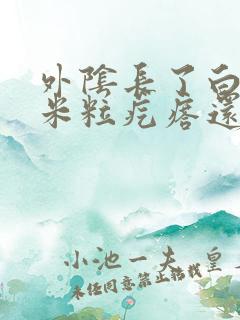 外陰長了白
米粒疙瘩還
小池一夫 皇
未經同意禁止轉載